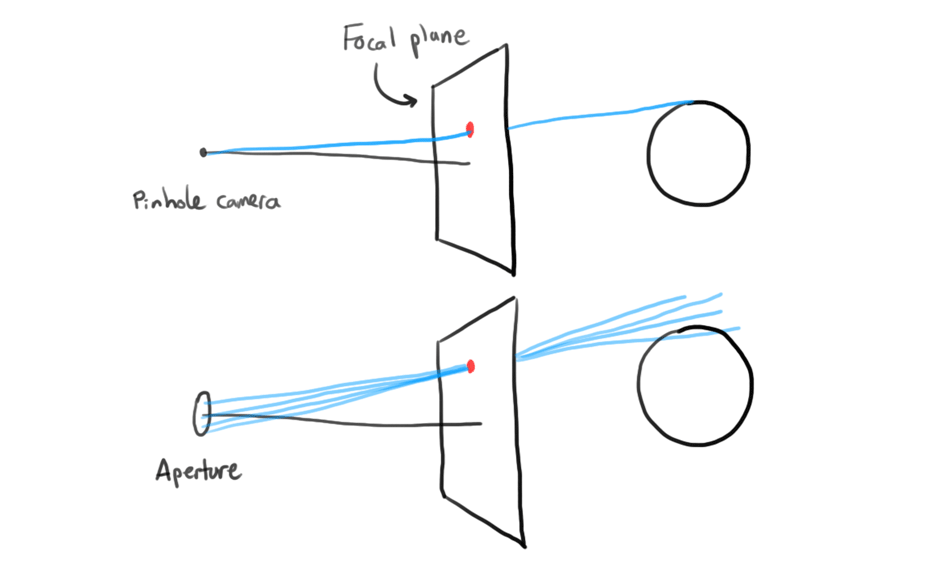 Focal plane
Pinhole camera
Aperture